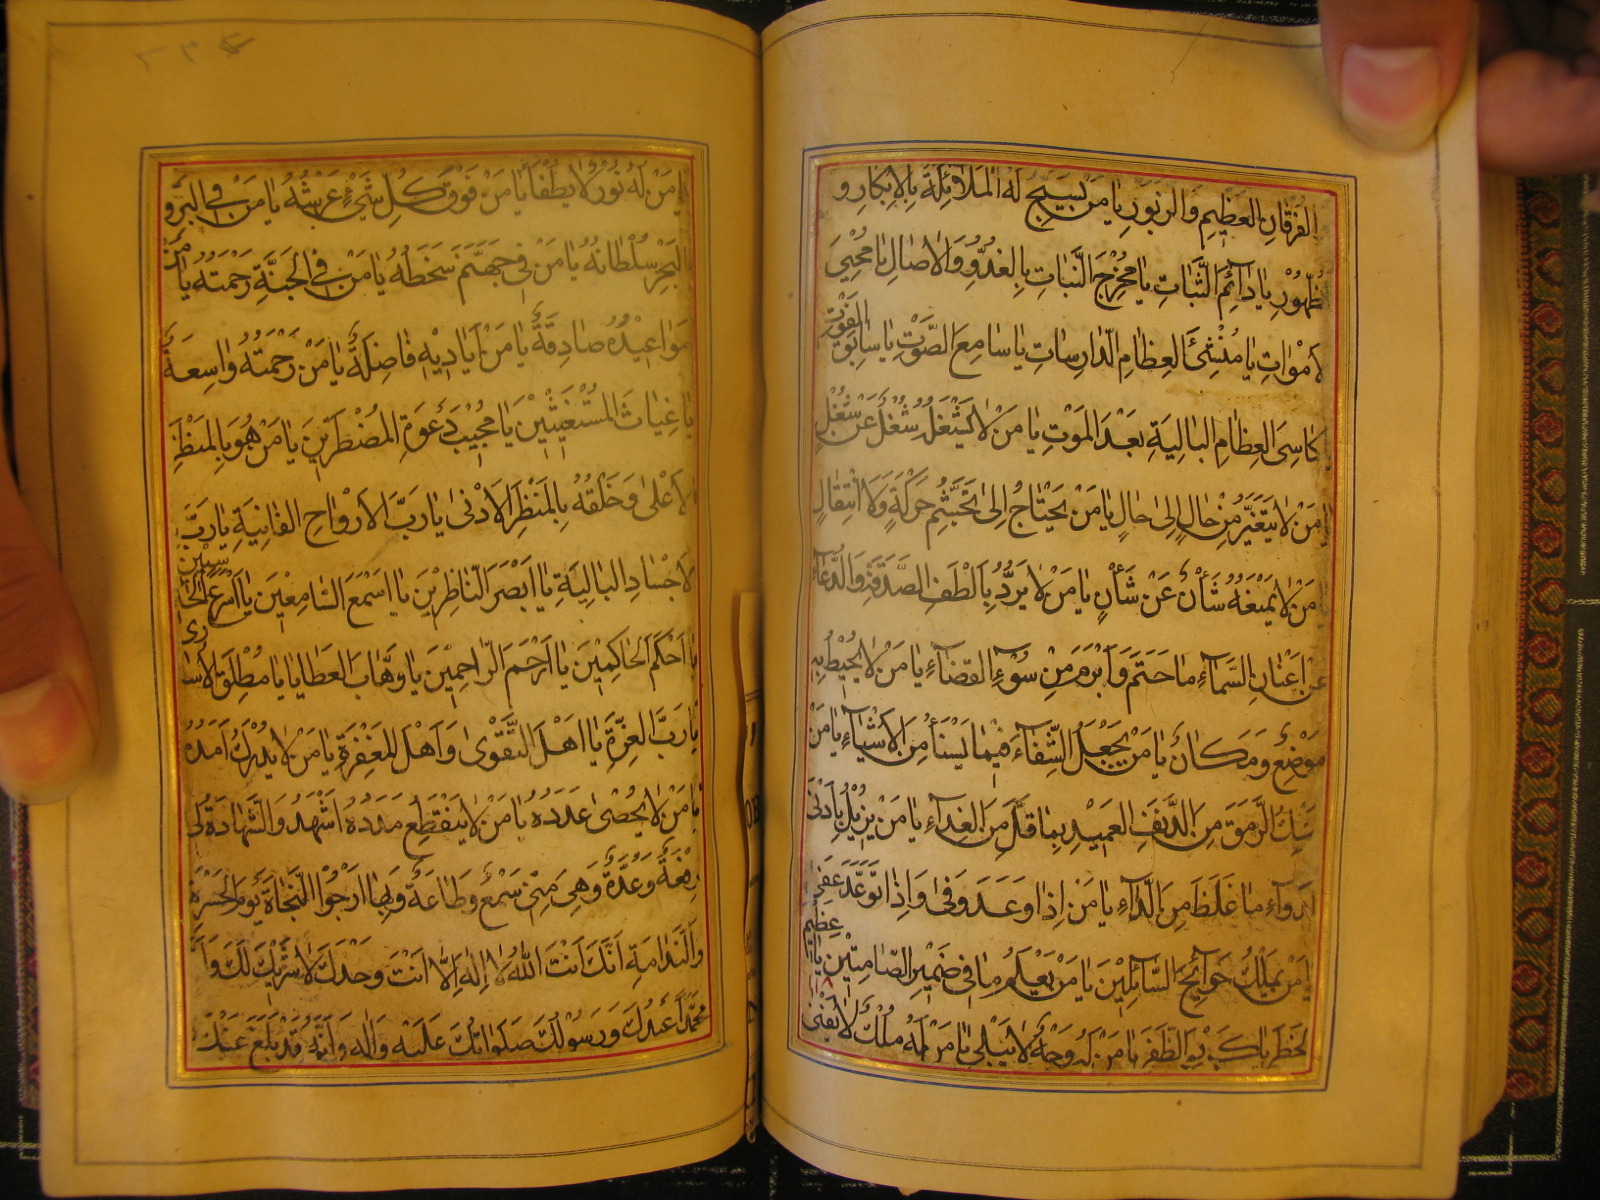 الفُرْقَانِ العَظِيمِ وَالزَّبُورِ يَا مَنْ تُسَبِّحُ لَهُ المَلَائِكَةُ بِالْإِبْكَارِ و
ظُهُوْرِ يَا دَائِمَ الثَّبَاتِ يَا مُخْرِجَ النَّبَاتِ بِالغُدُوِّ وَالْاصَالِ يَا مُحْيِيَ
لاَمْوَاتِ يَا مُنْشِئَ العِظَامِ الدَّارِسَاتِ يَا سَامِعَ الصَّوْتِ يَا سَابِقَ الفَوْتِ
كَاسِيَ العِظَامِ البَالِيَةِ بَعْدَ المَوْتِ يَا مَنْ لَا يَشْغَلُهُ شُغْلٌ عَنْ شُغْلٍ
مَنْ لَا يَتَغَيَّرُ مِنْ حَالٍ إِلَى حَالٍ يَا مَنْ يَحْتَاجُ إِلَى تَجَشُّمِ حَرَكَةٍ وَلَا انْتِقَالٍ
مَنْ لَا يَمْنَعُهُ شَأْنٌ عَنْ شَأْنٍ يَا مَنْ لَا يَرُدُّ بِأَلْطَفِ الصَّدَقَةِ وَالدُّعَاءِ
عَنْ اعْنَانِ السَّمَاءِ مَا حَتَمَ وَأَبْرَمَ مِنْ سُوْءِ القَضَاءِ يَا مَنْ لَا يُحِيْطُ بِهِ
مَوْضِعٌ وَمَكَانٌ يَا مَنْ يَجْعَلُ الشِّفَاءَ فِيْمَا يَشَاءُ مِنَ الْأَشْيَاءِ يَا مَنْ
يُمْسِكُ الرَّمَقَ مِنَ الدَّنِفِ العَمِيْدِ بِمَا قَلَّ مِنَ الغِذَاءِ يَا مَنْ يُزِيْلُ بِأَدْنَى
الدَوَاءِ مَا غَلُظَ مِنَ الدَّاءِ يَا مَنْ إِذَا وَعَدَ وَفَى وَإِذَا تَوَعَّدَ عَفَى
يَا مَنْ يَمْلِكُ حَوَائِجَ السَّائِلِيْنَ يَا مَنْ يَعْلَمُ مَا فِي ضَمِيْرِ الصَّامِتِيْنَ يَا عَظِيْمَ
الخَطَرِ يَا كَرِيمَ الظَّفَرِ يَا مَنْ لَهُ وَجْهٌ لَا يَبْلَى يَا مَنْ لَهُ مُلْكٌ لَا يَفْنَى
يَا مَنْ لَهُ نُوْرٌ لَا يُطْفَأُ يَا مَنْ فَوْقَ كُلِّ شَيْءٍ عَرْشُهُ يَا مَنْ فِي البَرِّ وَ
البَحْرِ سُلْطَانُهُ يَا مَنْ فِي جَهَنَّمَ سَخَطُهُ يَا مَنْ فِي الجَنَّةِ رَحْمَتُهُ يَا مَنْ
مَوَاعِيْدُهُ صَادِقَةٌ يَا مَنْ أَيَادِيْهِ فَاضِلَةٌ يَا مَنْ رَحْمَتُهُ وَاسِعَةٌ
يَا غِيَاثَ المُسْتَغِيْثِيْنَ يَا مُجِيْبَ دَعْوَةِ المُضْطَرِّيْنَ يَا مَنْ هُوَ بِالمَنْظَرِ
لاَعْلَى وَخَلْقُهُ بِالمَنْظَرِ الْأَدْنَى يَا رَبَّ الْأَرْوَاحِ الفَانِيَةِ يَا رَبَّ
لاَجْسَادِ البَالِيَةِ يَا أَبْصَرَ النَّاظِرِيْنَ يَا أَسْمَعَ السَّامِعِيْنَ يَا أَسْرَعَ الحَاسِبِيْنَ
يَا أَحْكَمَ الحَاكِمِيْنَ يَا أَرْحَمَ الرَّاحِمِيْنَ يَا وَهَّابَ العَطَايَا يَا مُطْلِقَ الْأُسَارى
يَا رَبَّ العِزَّةِ يَا أَهْلَ التَّقْوَى وَأَهْلَ المَغْفِرَةِ يَا مَنْ لَا يُدْرَكُ أَمَدُهُ
يَا مَنْ لَا يُحْصَى عَدَدُهُ يَا مَنْ لَا يَنْقَطِعُ مَدَدُهُ أَشْهَدُ وَالشَّهَادَةُ لِي
رِفْعَةٌ وَعُدَّةٌ وَهِيَ مِنِّي سَمْعٌ وَطَاعَةٌ وَبِهَا أَرْجُوْا النَّجَاةَ يَوْمَ الحَسْرَةِ
وَالنَّدَامَةِ أَنَّكَ أَنْتَ اللهُ لَا إِلَهَ إِلَّا أَنْتَ وَحْدَكَ لَا شَرِيْكَ لَكَ وَأَنَّ
مُحَمَّدًا عَبْدُكَ وَرَسُوْلُكَ صَلَوَاتُكَ عَلَيْهِ وَالِهِ وَأَنَّهُ قَدْ بَلَّغَ عَنْكَ